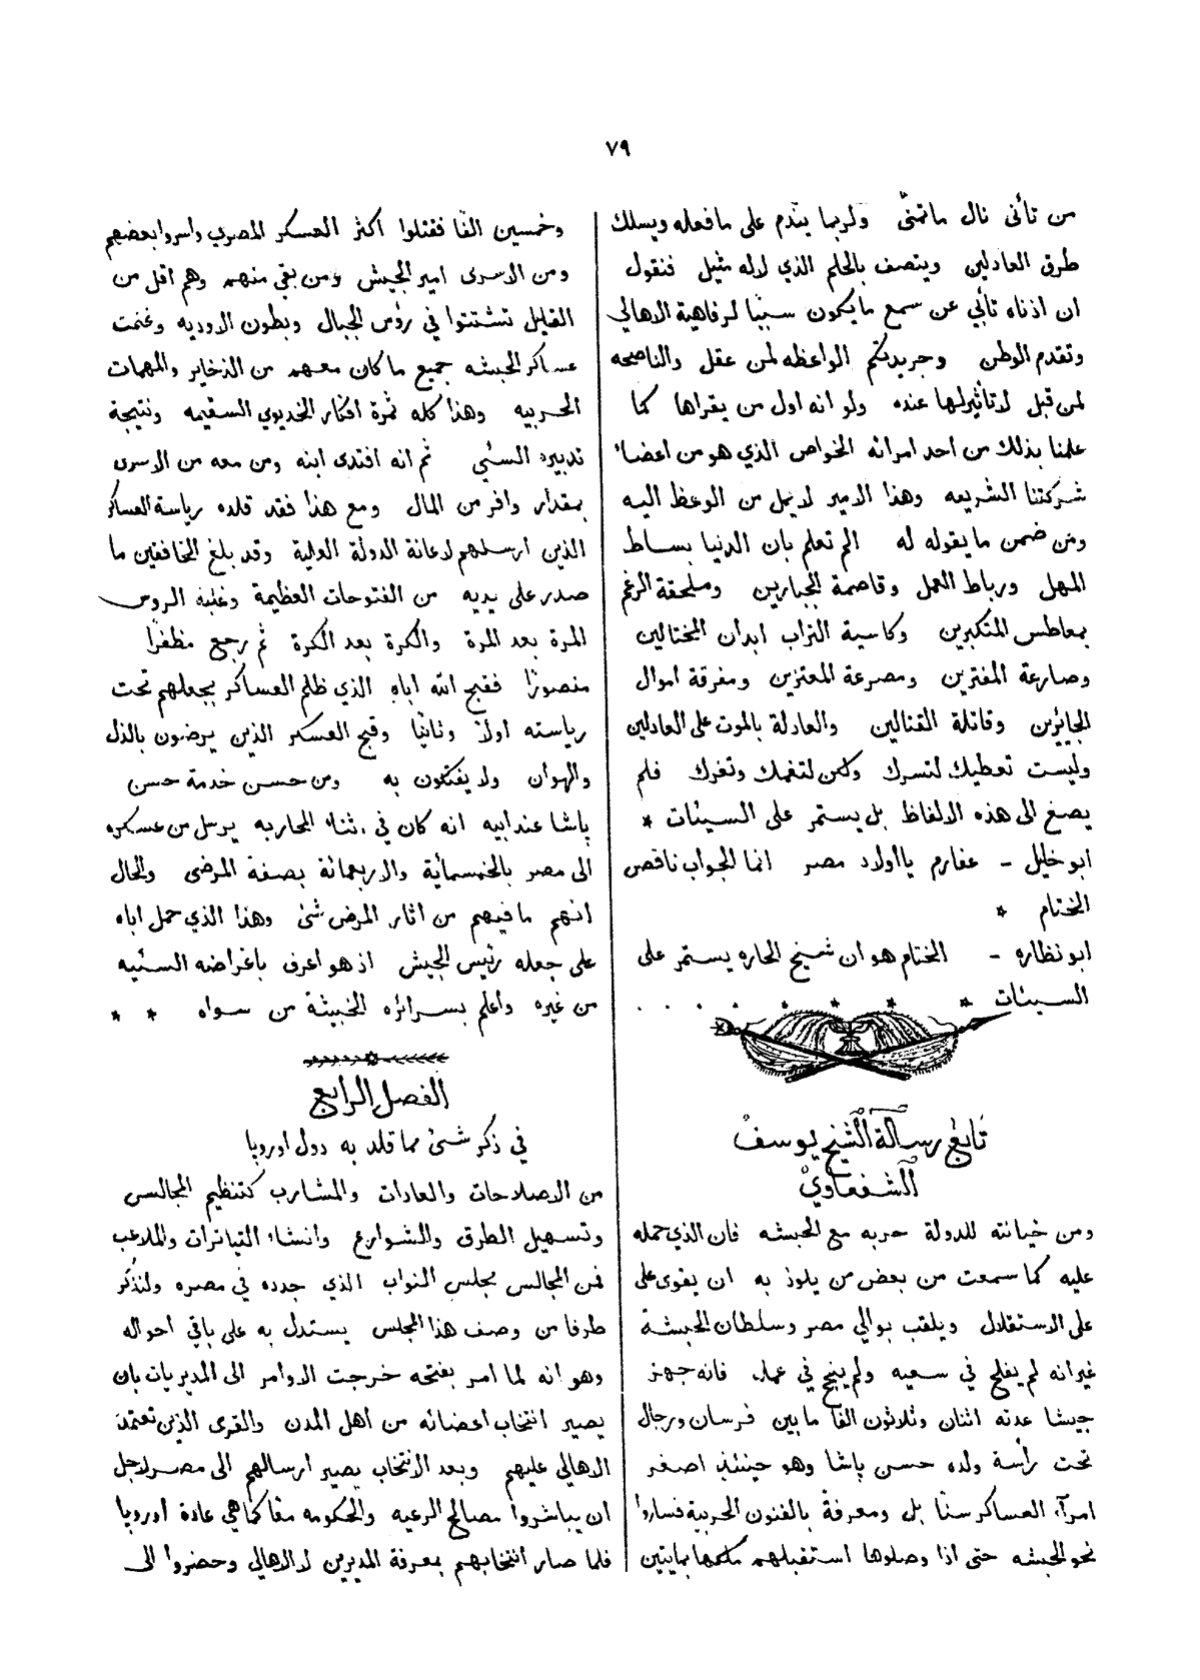 ٧٩
من تأنى نال ماتمنّى ولربما يندم على مافعله ويسلك
طرق العادلين ويتصف بالحلم الذي لاله مثيل فنقول
ان اذناه تأبي عن سمع مايكون سببًا لرفاهية الاهالي
وتقدم الوطن وجريدتكم الواعظه لمن عقل والناصحه
لمن قبل لاتأثيرلها عنده ولو انه اول من يقراها كما
علمنا بذلك من احد امرائه الخواص الذي هو من اعضاء
شركتنا الشريفه وهذا الامير لايمل من الوعظ اليه
ومن ضمن مايقوله له الم تعلم بان الدنيا بساط
المهل ورباط العمل وقاصمة الجبارين وملحقة الرغم
بمعاطس المتكبرين وكاسية التراب ابدان المختالين
وصارعة المفترين ومصرعة المعتزين ومفرقة اموال
الجايرين وقاتلة القتالين والعادلة بالموت على العادلين
وليست تعطيك لتسرك ولكن لتغمك وتغرك فلم
يصغ الى هذه الالفاظ بل يستمر على السيئات *
ابو خليل - عفارم يااولاد مصر انما الجواب ناقص
الختام *
ابو نظاره - الختام هو ان شيخ الحاره يستمر على
السيئات * * * * . . . .
تابع رسالة الشيخ يوسف
الشفعاوي
ومن خيانته للدولة حربه مع الحبشه فان الذي حمله
عليه كما سمعت من بعض من يلوذ به ان يقوى على
على الاستقلال ويلقب بوالي مصر وسلطان الحبشة
غيرانه لم يفلح في سعيه ولم ينجح في عمله فانه جهز
جيشا عدته اثنان وثلاثون الفا مابين فرسان ورجال
تحت رأسة ولده حسن پاشا وهو حينئذ اصغر
امرآء العساكر سنًا بل ومعرفة بالفنون الحربية فساروا
نحو الحبشه حتى اذا وصلوها استقبلهم ملكها بمايتين
وخمسين الفًا فقتلوا اكثر العسكر المصري واسروا بعضهم
ومن الاسرى امير الجيش ومن بقي منهم وهم اقل من
القليل تشتتوا في رؤس الجبال وبطون الاوديه وغنمت
عساكر الحبشه جميع ما كان معهم من الذخاير والمهمات
الحربيه وهذا كله ثمرة افكار الخديوي السقيمه ونتيجة
تدبيره السئي ثم انه افتدى ابنه ومن معه من الاسرى
بمقدار وافر من المال ومع هذا فقد قلده رياسة العساكر
الذين ارسلهم لاعانة الدولة العلية وقد بلغ الخافقين ما
صدر على يديه من الفتوحات العظيمة وغلبة الروس
المرة بعد المرة والكرة بعد الكرة ثم رجع مظفرًا
منصورًا فقبح الله اباه الذي ظلم العساكر بجعلهم تحت
رياسته اولاً وثانيًا وقبح العسكر الذين يرضون بالذل
والهوان ولا يفتكون به ومن حسن خدمة حسن
پاشا عند ابيه انه كان في اثناء المحاربه يرسل من عسكره
الى مصر بالخمسماية والاربعمائة بصفة المرضى والحال
انهم ما فيهم من اثار المرض شئ وهذا الذي حمل اباه
على جعله رئيس الجيش اذ هو اعرف باغراضه السئيه
من غيره واعلم بسرائره الخبيثة من سواه * *
الفصل الرابع
في ذكر شئ مما قلد به دول اوروپا
من الاصلاحات والعادات والمشارب كتنظيم المجالس
وتسهيل الطرق والشوارع وانشاء التياترات والملاعب
فمن المجالس مجلس النواب الذي جدده في مصره ولنذكر
طرفا من وصف هذا المجلس يستدل به على باقي احواله
وهو انه لما امر بفتحه خرجت الاوامر الى المديريات بان
يصير انتخاب اعضائه من اهل المدن والقرى الذين تعتمد
الاهالي عليهم وبعد الانتخاب يصير ارسالهم الى مصر لاجل
ان يباشروا مصالح الرعيه والحكومه معًا كما هي عادة اوروپا
فلما صار انتخابهم بمعرفة المديرين لا الاهالي وحضروا الى